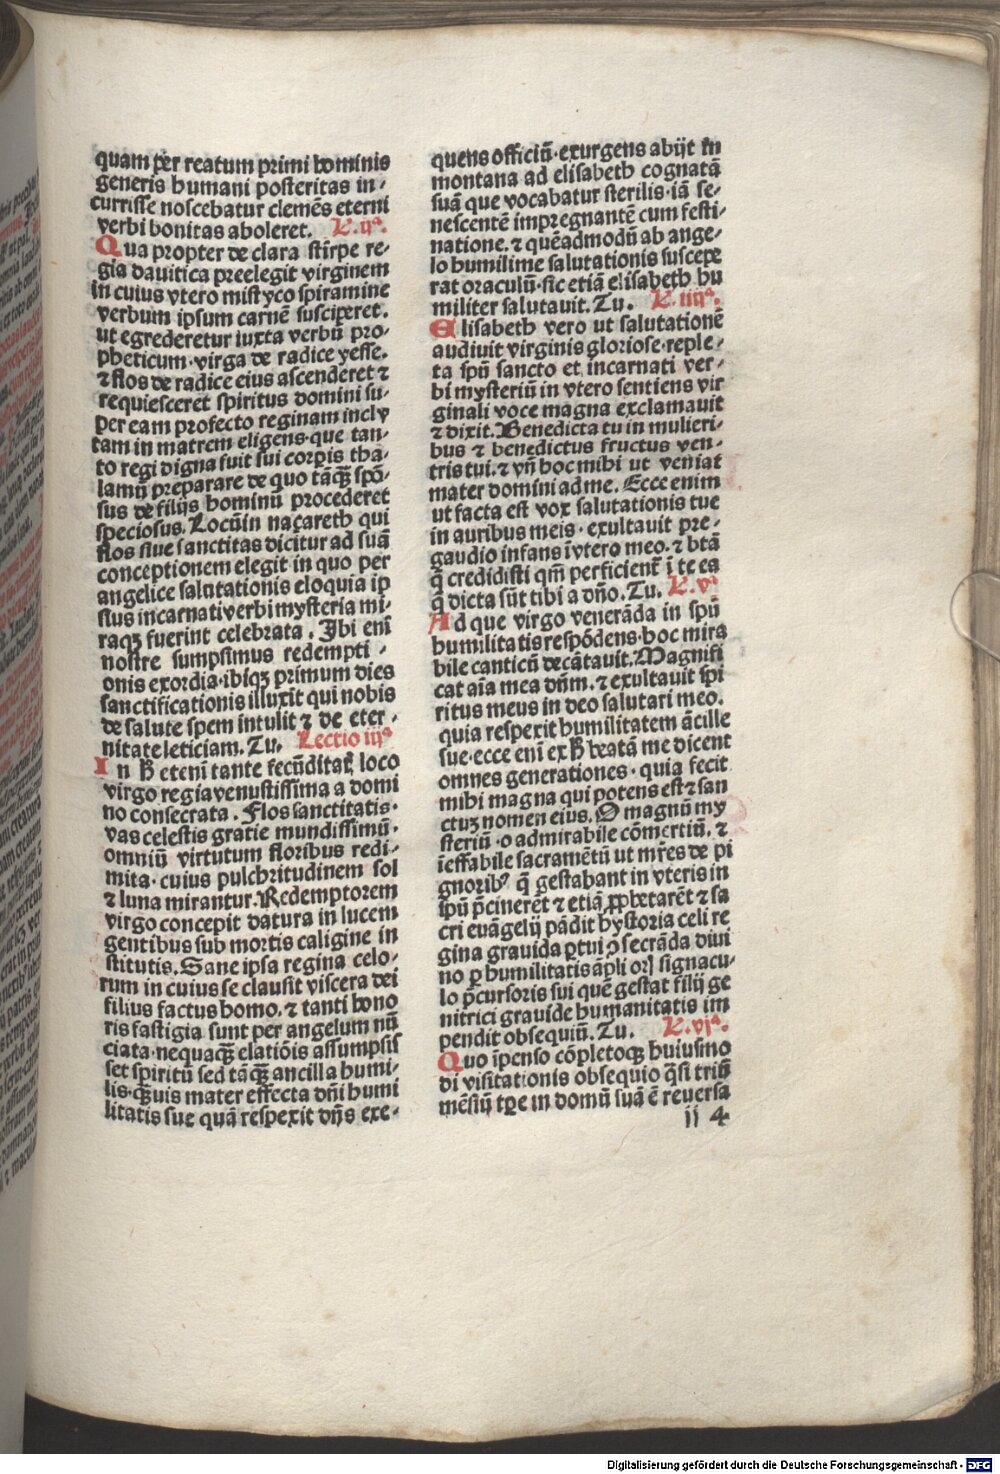 quam per reatum primi hominis
generis humani posteritas in-
currisse noscebatur clemẽs eterni
verbi bonitas aboleret. L. ijª.
Qua propter de clara stirpe re-
gia dauitica preelegit virginem
in cuius vtero mistyco spiramine
verbum ipsum carnẽ susciperet.
ut egrederetur iuxta verbũ pro-
pheticum·virga de radice yesse.
⁊ flos de radice eius ascenderet ⁊
requiesceret spiritus domini su-
per eam profecto reginam incly
tam in matrem eligens·que tan-
to regi digna fuit sui corꝑis tha-
lamũ preparare de quo tãqȝ spõ-
sus de filijs hominũ procederet
speciosus. Locũ in naçareth qui
flos siue sanctitas dicitur ad suã
conceptionem elegit in quo per
angelice salutationis eloquia ip
sius incarnati verbi mysteria mi-
raqȝ fuerint celebrata. Ibi enĩ
nostre sumpsimus redempti-
onis exordia·ibiqȝ primum dies
sanctificationis illuxit qui nobis
de salute spem intulit ⁊ de eter-
nitate leticiam. Tu. Lectio iijª
In h etenĩ tante fecũditatꝭ loco
virgo regia venustissima a domi
no consecrata. Flos sanctitatis·
vas celestis gratie mundissimũ·
omniũ virtutum floribus redi-
mita·cuius pulchritudinem sol
⁊ luna mirantur. Redemptorem
virgo concepit datura in lucem
gentibus sub mortis caligine in
stitutis. Sane ipsa regina celo-
rum in cuius se clausit viscera dei
filius factus homo. ⁊ tanti hono
ris fastigia sunt per angelum nũ
ciata·nequaqȝ elatiõis assumpsis
set spiritũ sed tãqȝ ancilla humi-
lis·qȝuis mater effecta dñi humi
litatis sue quã respexit dñs exe-
quens officiũ·exurgens abijt in
montana ad elisabeth cognatã
suã que vocabatur sterilis·iã se-
nescentẽ impregnantẽ cum festi-
natione. ⁊ quẽadmodũ ab ange-
lo humilime salutationis suscepe
rat oraculũ·sic etiã elisabeth hu
militer salutauit. Tu. L. iiijª.
Elisabeth vero ut salutationẽ
audiuit virginis gloriose·reple-
ta spũ sancto et incarnati ver-
bi mysteriũ in vtero sentiens vir
ginali voce magna exclamauit
⁊ dixit. Benedicta tu in mulieri-
bus ⁊ benedictus fructus ven-
tris tui. ⁊ vñ hoc mihi ut veniat
mater domini ad me. Ecce enim
ut facta est vox salutationis tue
in auribus meis·exultauit pre-
gaudio infans ĩ vtero meo. ⁊ btã
q̃ credidisti qm̃ perficient̃ ĩ te ea
q̃ dicta sũt tibi a dño. Tu. L. vª
Ad que virgo venerãda in spũ
humilitatis respõdens·hoc mira
bile canticũ decãtauit. Magnifi
cat aĩa mea dñm. ⁊ exultauit spi
ritus meus in deo salutari meo.
quia respexit humilitatem ãcille
sue·ecce enĩ ex h beatã me dicent
omnes generationes·quia fecit
mihi magna qui potens est ⁊ san
ctuȝ nomen eius. O magnũ my
steriũ·o admirabile cõmertiũ. ⁊
ĩeffabile sacramẽtũ ut mr̃es de pi
gnoribꝰ q̃ gestabant in vteris in
spũ p̃cinerẽt ⁊ etiã ꝓphetarẽt ⁊ sa
cri euãgelij pãdit hystoria celi re
gina grauida ꝑtui ꝯsecrãda diui
no ꝑ humilitatis ãpli orꝭ signacu-
lo p̃cursoris sui quẽ gestat filij ge
nitrici grauide humanitatis im
pendit obsequiũ. Tu. L. vjª.
Quo ĩpenso cõpletoqȝ huiusmo
di visitationis obsequio q̃si tribꝰ
mẽsiũ tꝑe in domũ suã ẽ reuersa
ii 4
Digitalisierung gefördert durch die Deutsche Forschungsgemeinschaft - DFG